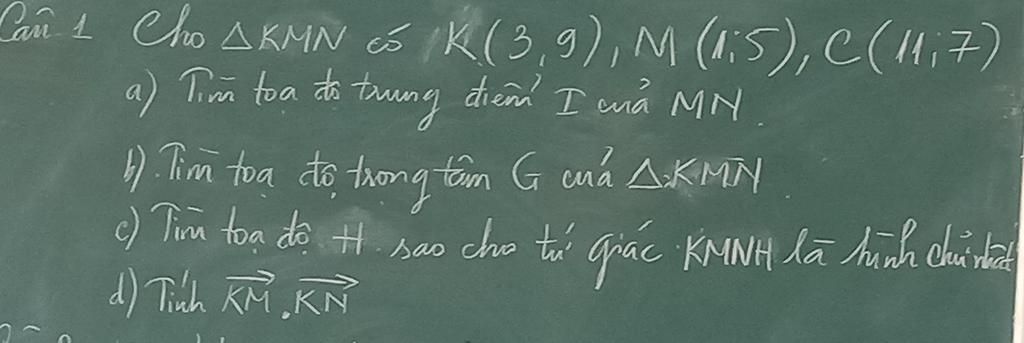 Câu 1 Cho △KMN có K(3,9), M(1;5), C(11;7)
a) Tìm tọa độ trung điểm I của MN.
b) Tìm tọa độ trọng tâm G của △KMN
c) Tìm tọa độ H sao cho tứ giác KMNH là hình chữ nhật
d) Tính \overrightarrow{KM}.\overrightarrow{KN}